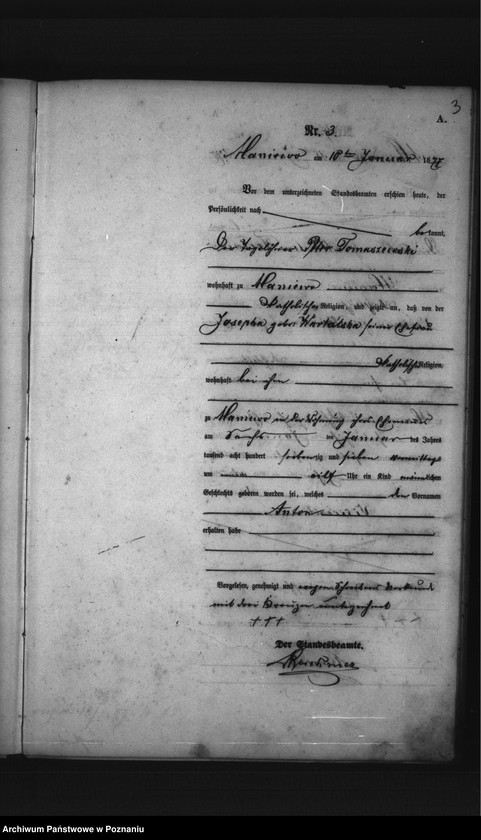 3
A.
Nr. 3.
Maniewo am 18ten Januar 1877
Vor dem unterzeichneten Standesbeamten erschien heute, der
Persönlichkeit nach
bekannt,
der Tagelöhner Tomaszewski
wohnhaft zu Maniewo
katholischer Religion, und zeigte an, daß von der
Josepha gebor. seiner Ehefrau
katholischer Religion,
wohnhaft bei ihm
zu Maniewo in der Wohnung ihres Ehemannes
am Sechs ten Januar des Jahres
tausend acht hundert siebenzig und sieben Vormittags
um eilf Uhr ein Kind männlichen
Geschlechts geboren worden sei, welches den Vornamen
Anton
erhalten habe
Vorgelesen, genehmigt und wegen Schreibens
mit drei Kreuzen unterzeichnet
+++
Der Standesbeamte.
Archiwum Państwowe w Poznaniu